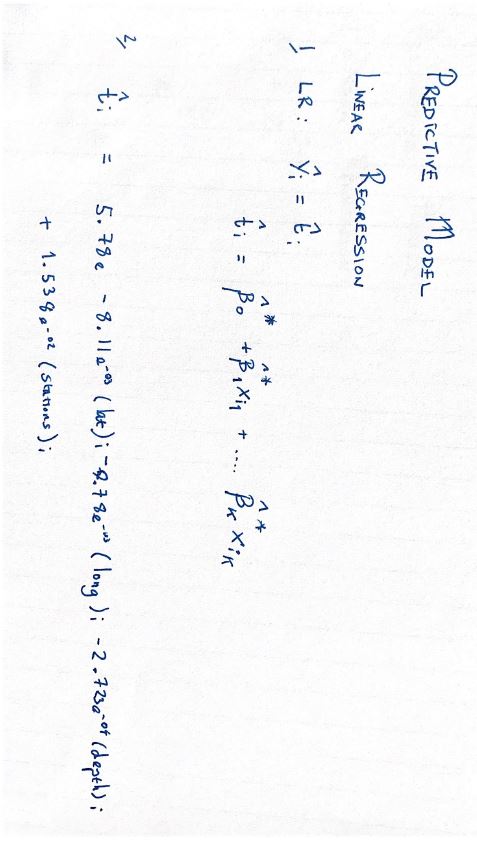 PREDICTIVE MODEL
LINEAR REGRESSION
1 LR: Ŷᵢ = t̂ᵢ
t̂ᵢ = β̂₀* + β̂₁*xᵢ₁ + .... β̂ₖ*xᵢₖ
2, t̂ᵢ = 5.78e - 8.11e⁻⁰³ (lat)ᵢ - 8.78e⁻⁰³ (long)ᵢ - 2.723e⁻⁰⁴ (depth)ᵢ
+ 1.538e⁻⁰² (stations)ᵢ